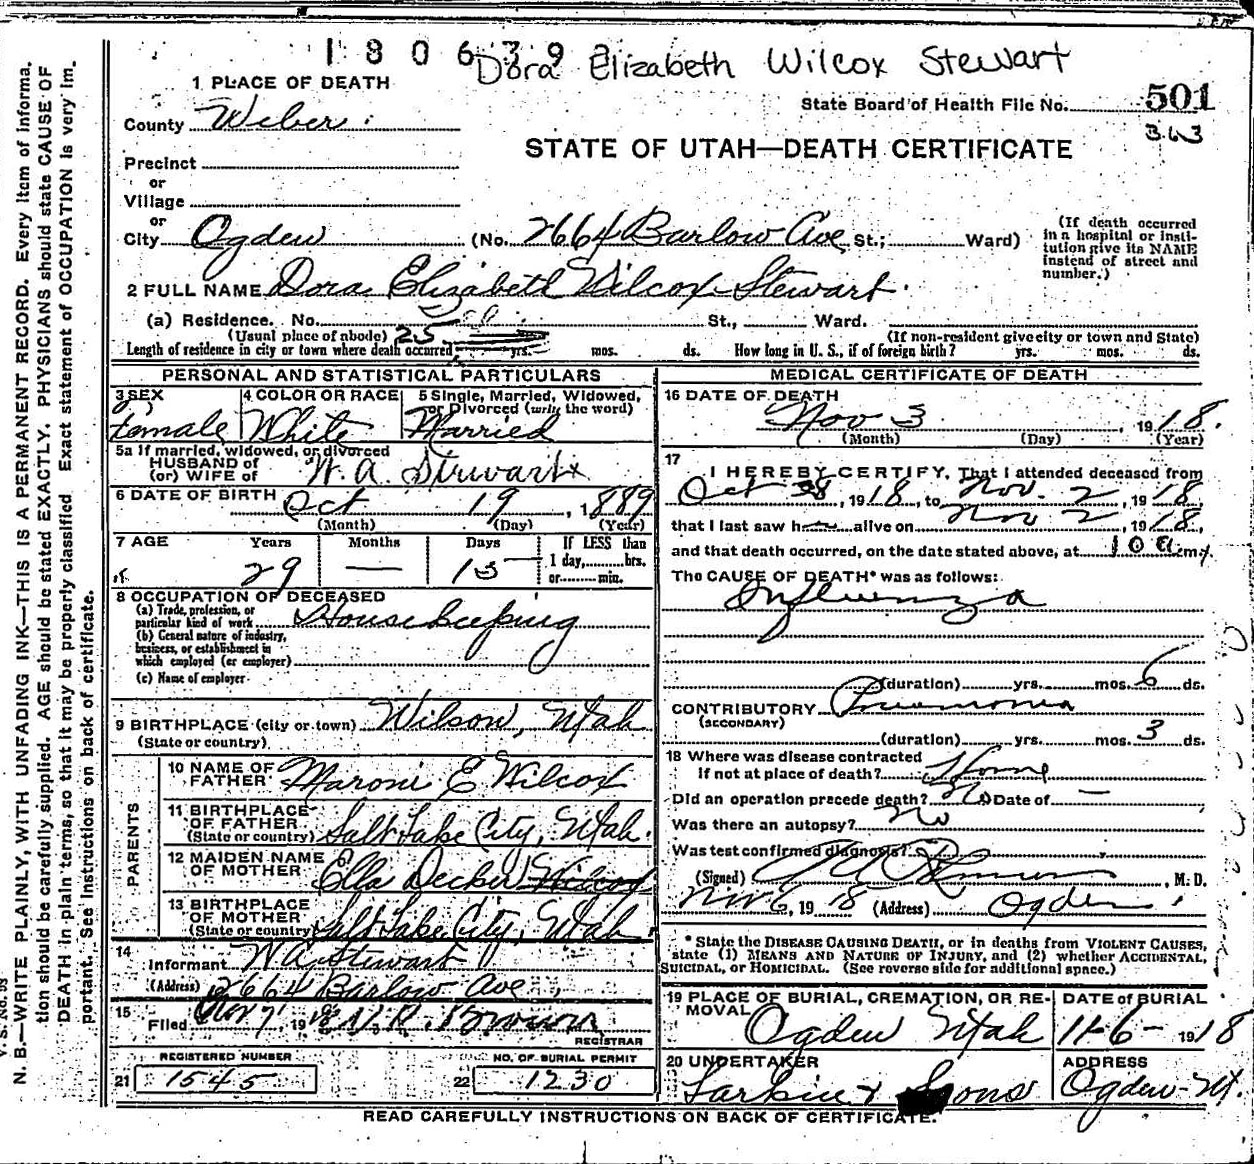 180639 Dora Elizabeth Wilcox Stewart
1 PLACE OF DEATH
State Board of Health File No. 501
County Weber
363
STATE OF UTAH—DEATH CERTIFICATE
Precinct
or
Village
or
City Ogden (No. 2664 Barlow Ave St.; Ward)
(If death occurred in a hospital or institution give its NAME instead of street and number.)
2 FULL NAME Dora Elizabeth Wilcox Stewart
(a) Residence. No. St., Ward.
(Usual place of abode) 25 (If non-resident give city or town and State)
Length of residence in city or town where death occurred yrs. mos. ds. How long in U. S., if of foreign birth? yrs. mos. ds.
PERSONAL AND STATISTICAL PARTICULARS
3 SEX 4 COLOR OR RACE 5 Single, Married, Widowed,
or Divorced (write the word)
Female White Married
5a If married, widowed, or divorced
HUSBAND of
(or) WIFE of W. A. Stewart
6 DATE OF BIRTH Oct 19, 1889
(Month) (Day) (Year)
7 AGE Years Months Days If LESS than
1 day, hrs.
or min.
29 — 15
8 OCCUPATION OF DECEASED
(a) Trade, profession, or
particular kind of work Housekeeping
(b) General nature of industry,
business, or establishment in
which employed (or employer)
(c) Name of employer
9 BIRTHPLACE (city or town) Wilson, Utah
(State or country)
PARENTS
10 NAME OF
FATHER Maroni E Wilcox
11 BIRTHPLACE
OF FATHER
(State or country) Salt Lake City, Utah.
12 MAIDEN NAME
OF MOTHER Ella Decker Wilcox
13 BIRTHPLACE
OF MOTHER
(State or country) Salt Lake City, Utah
14
Informant W A Stewart
(Address) 2664 Barlow Ave
15
Filed Nov 7, 1918 Brown
REGISTRAR
REGISTERED NUMBER
21 1545
NO. OF BURIAL PERMIT
22 1230
MEDICAL CERTIFICATE OF DEATH
16 DATE OF DEATH
Nov 3, 1918.
(Month) (Day) (Year)
17
I HEREBY CERTIFY, That I attended deceased from
Oct 28, 1918, to Nov. 2, 1918,
that I last saw h alive on Nov 2, 1918,
and that death occurred, on the date stated above, at 10 a.m.
The CAUSE OF DEATH* was as follows:
Influenza
(duration) yrs. mos. 6 ds.
CONTRIBUTORY Pneumonia
(SECONDARY)
(duration) yrs. mos. 3 ds.
18 Where was disease contracted
if not at place of death? Home
Did an operation precede death? No Date of —
Was there an autopsy? No
Was test confirmed diagnosis?
(Signed) , M. D.
Nov 6, 1918 (Address) Ogden
* State the DISEASE CAUSING DEATH, or in deaths from VIOLENT CAUSES,
state (1) MEANS AND NATURE OF INJURY, and (2) whether ACCIDENTAL,
SUICIDAL, or HOMICIDAL. (See reverse side for additional space.)
19 PLACE OF BURIAL, CREMATION, OR RE-
MOVAL DATE of BURIAL
Ogden Utah 11-6- 1918
20 UNDERTAKER ADDRESS
Larkin & Sons Ogden Ut.
READ CAREFULLY INSTRUCTIONS ON BACK OF CERTIFICATE.
V. S. No. 93
N. B.—WRITE PLAINLY, WITH UNFADING INK—THIS IS A PERMANENT RECORD. Every item of informa-
tion should be carefully supplied. AGE should be stated EXACTLY. PHYSICIANS should state CAUSE OF
DEATH in plain terms, so that it may be properly classified. Exact statement of OCCUPATION is very im-
portant. See instructions on back of certificate.